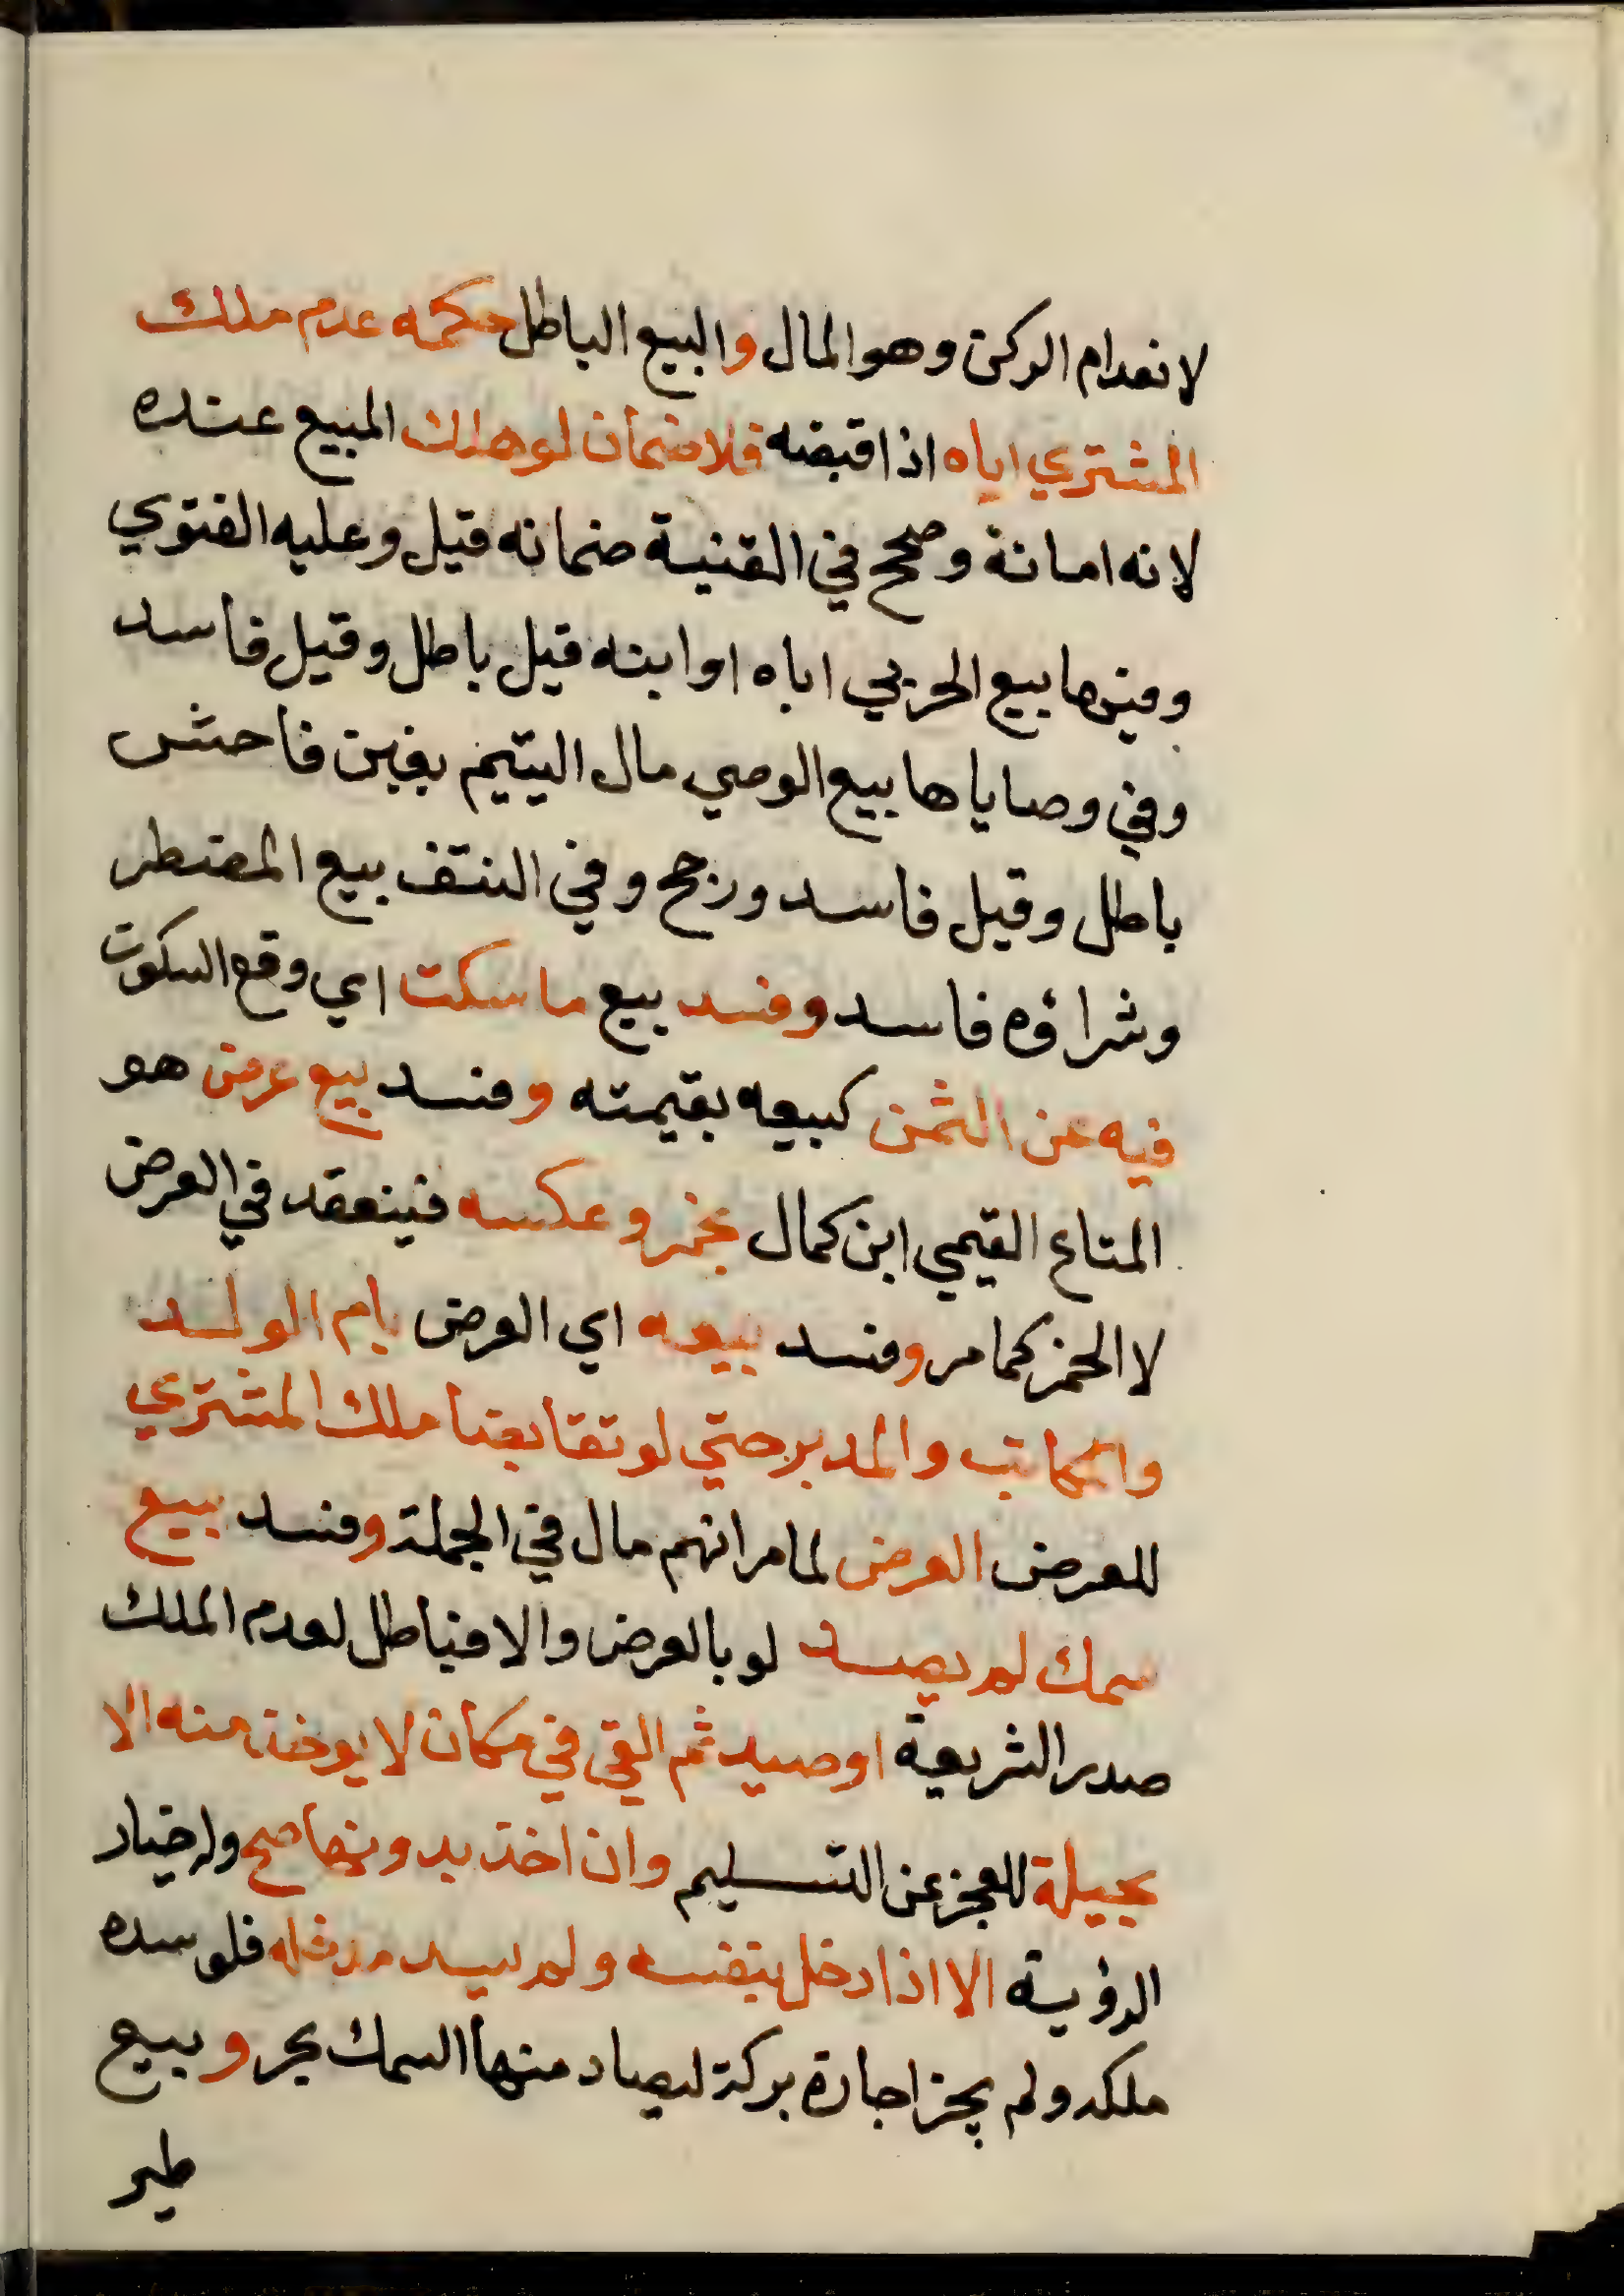 لانعدام الركن وهو المال والبيع الباطل حكمه عدم ملك
المشتري اياه اذا قبضه فلا ضمان لو هلك المبيع عنده
لانه امانة وصحح في القنية ضمانه قيل وعليه الفتوي
ومنها بيع الحربي اباه او ابنه قيل باطل وقيل فاسد
وفي وصاياها بيع الوصي مال اليتيم بغبن فاحش
باطل وقيل فاسد ورجح وفي النتف بيع المضطر
وشراؤه فاسد وفسد بيع ما سكت اي وقع السكوت
فيه عن الثمن كبيعه بقيمته وفسد بيع عرض هو
المتاع القيمي ابن كمال بخمر وعكسه فينعقد في العرض
لا الخمر كما مر وفسد بيعه اي العرض بام الولد
والمكاتب والمدبر حتي لو تقابضا ملك المشتري
للعرض العرض لما مر انهم مال في الجملة وفسد بيع
سمك لم يصد لو بالعرض والا فباطل لعدم الملك
صدر الشريعة او صيد ثم القي في مكان لا يوخذ منه الا
بحيلة للعجز عن التسليم وان اخذ بدونها صح وله خيار
الرؤية الا اذا دخل بنفسه ولم يسد مدخله فلو سده
ملكه ولم يجز اجارة بركة ليصاد منها السمك بحر وبيع
طير